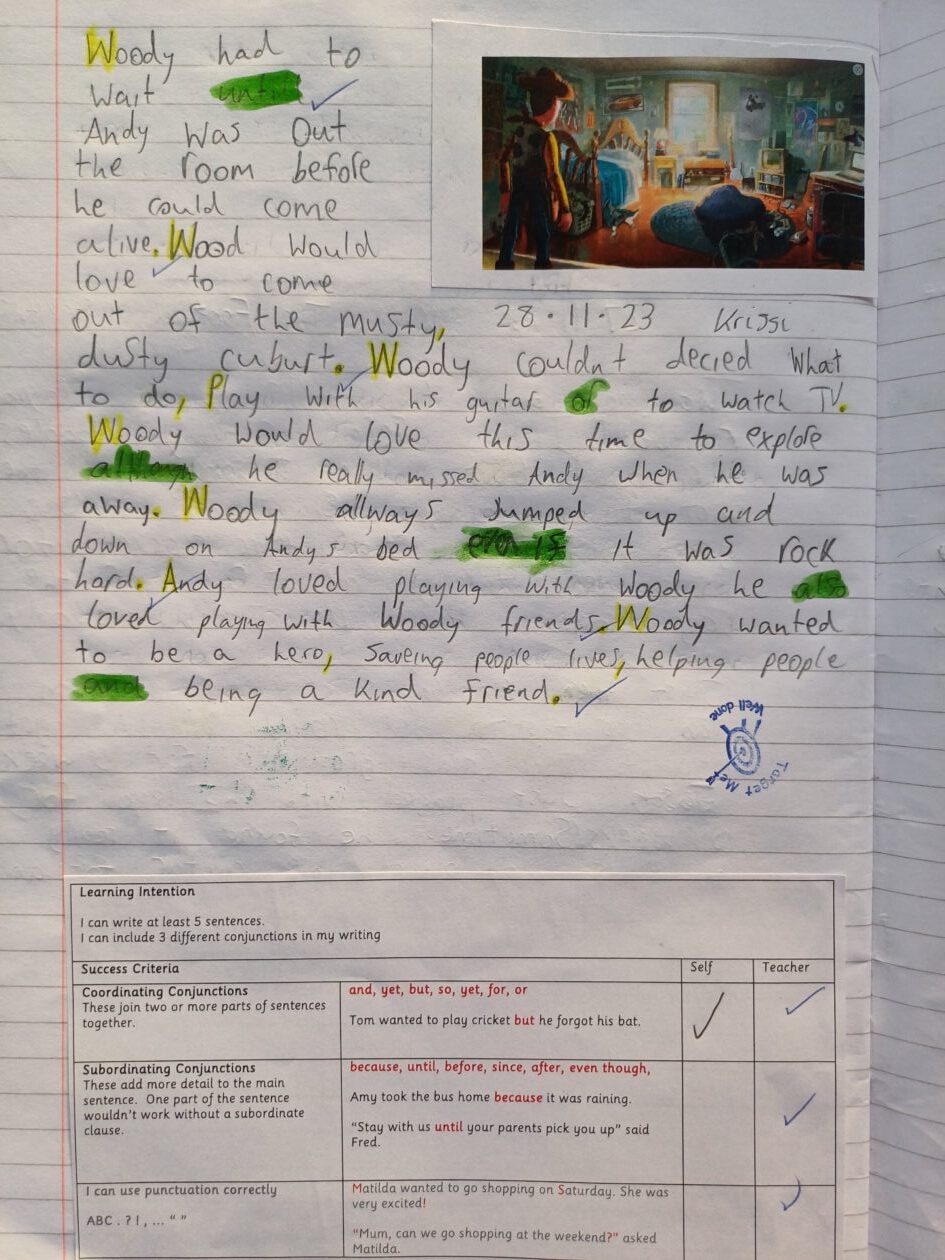 Woody had to
wait until
Andy was out
the room before
he could come
alive. Wood would
love to come
out of the musty,
28.11.23 Krissi
dusty cuburt. Woody couldnt decied what
to do, Play with his guitar or to watch TV.
Woody would love this time to explore
although he really missed Andy when he was
away. Woody allways Jumped up and
down on Andys bed even if it was rock
hard. Andy loved playing with woody he also
loved playing with Woody friends. Woody wanted
to be a hero, saveing people lives, helping people
and being a kind friend.
Well done
Target Met
Learning Intention
I can write at least 5 sentences.
I can include 3 different conjunctions in my writing
Success Criteria
Self
Teacher
Coordinating Conjunctions
These join two or more parts of sentences
together.
and, yet, but, so, yet, for, or
Tom wanted to play cricket but he forgot his bat.
Subordinating Conjunctions
These add more detail to the main
sentence. One part of the sentence
wouldn't work without a subordinate
clause.
because, until, before, since, after, even though,
Amy took the bus home because it was raining.
"Stay with us until your parents pick you up" said
Fred.
I can use punctuation correctly
ABC . ? ! , ... " "
Matilda wanted to go shopping on Saturday. She was
very excited!
"Mum, can we go shopping at the weekend?" asked
Matilda.